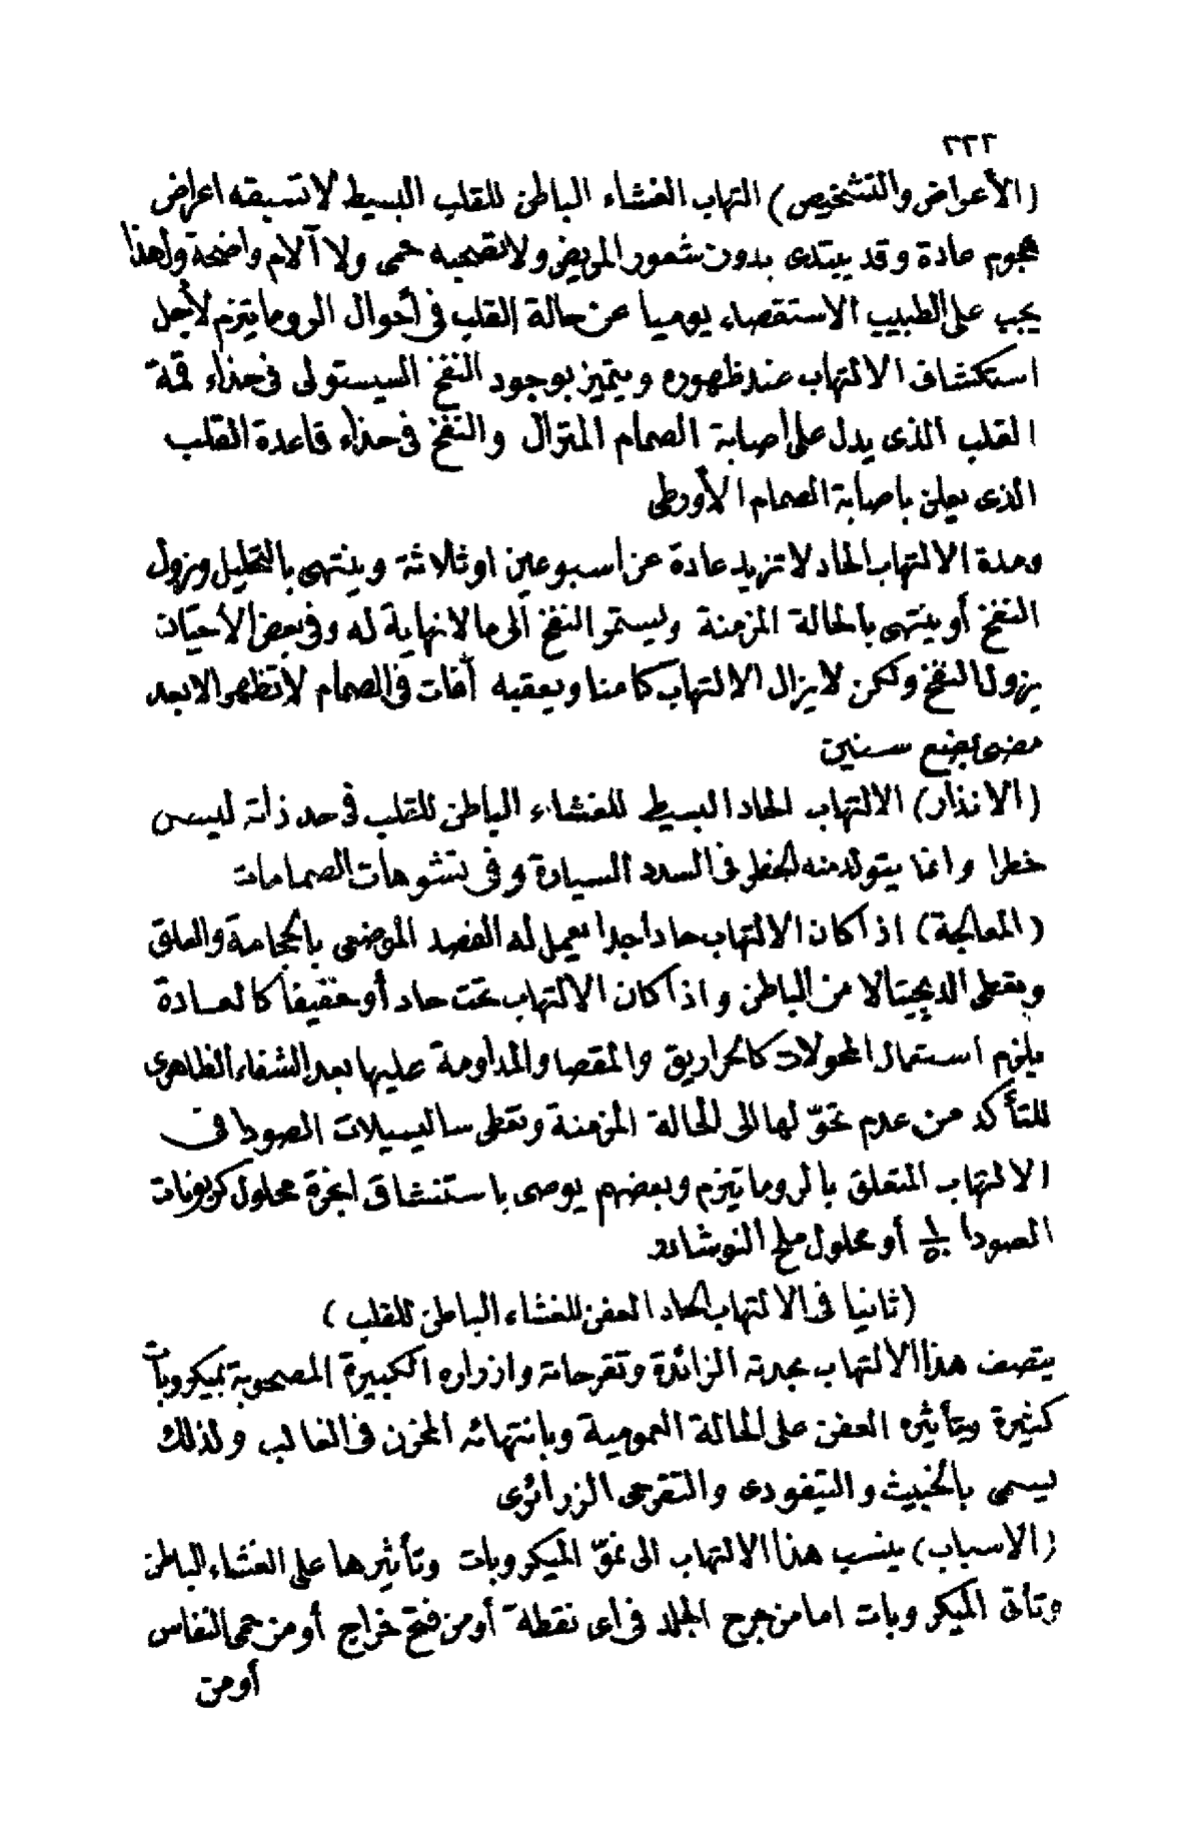 ٢٢٢
(الأعراض والتشخيص) التهاب الغشاء الباطن للقلب البسيط لا تسبقه اعراض
هجوم عادة وقد يبتدى بدون شعور المريض ولا تصحبه حمى ولا آلام واضحة ولهذا
يجب على الطبيب الاستقصاء يوميا عن حالة القلب فى أحوال الروماتيزم لأجل
استكشاف الالتهاب عند ظهوره ويتميز بوجود النفخ السيستولى فى حذاء قمة
القلب الذى يدل على اصابة الصمام المترال والنفخ فى حذاء قاعدة القلب
الذى يعلن باصابة الصمام الأورطى
ومدة الالتهاب الحاد لا تزيد عادة عن اسبوعين اوثلاثة وينتهى بالتحليل ويزول
النفخ أو ينتهى بالحالة المزمنة ويستمر النفخ الى ما لا نهاية له وفى بعض الأحيان
يزول النفخ ولكن لا يزال الالتهاب كامنا ويعقبه آفات فى الصمام لا تظهر الا بعد
مضى بضع سنين
(الانذار) الالتهاب الحاد البسيط للغشاء الباطن للقلب فى حد ذاته ليس
خطرا وانما يتولد منه الخطر فى السدد السيارة وفى تشوهات الصمامات
(المعالجة) اذا كان الالتهاب حادا جدا يعمل له الفصد الموضعى بالحجامة والعلق
ويعطى الديجيتالا من الباطن واذا كان الالتهاب تحت حاد أو خفيفا كالعادة
يلزم استعمال المحولات كالحراريق والمقصا والمداومة عليها بعد الشفاء الظاهرى
للتأكد من عدم تحوّلها الى الحالة المزمنة وتعطى ساليسيلات الصودا فى
الالتهاب المتعلق بالروماتيزم وبعضهم يوصى باستنشاق ابخرة محلول كربونات
الصودا ١/٥٠ أو محلول ملح النوشادر
(ثانيا فى الالتهاب الحاد العفن للغشاء الباطن للقلب)
يتصف هذا الالتهاب بحدته الزائدة وتقرحاته وازراره الكبيرة المصحوبة بميكروبات
كثيرة وبتأثيره العفن على الحالة العمومية وبانتهائه المحزن فى الغالب ولذلك
يسمى بالخبيث والتيفودى والتقرحى الزرائرى
(الاسباب) ينسب هذا الالتهاب الى نموّ الميكروبات وتأثيرها على الغشاء الباطن
وتأتى الميكروبات اما من جرح الجلد فى اى نقطة أو من فتح خراج أو من حمى النفاس
أو من